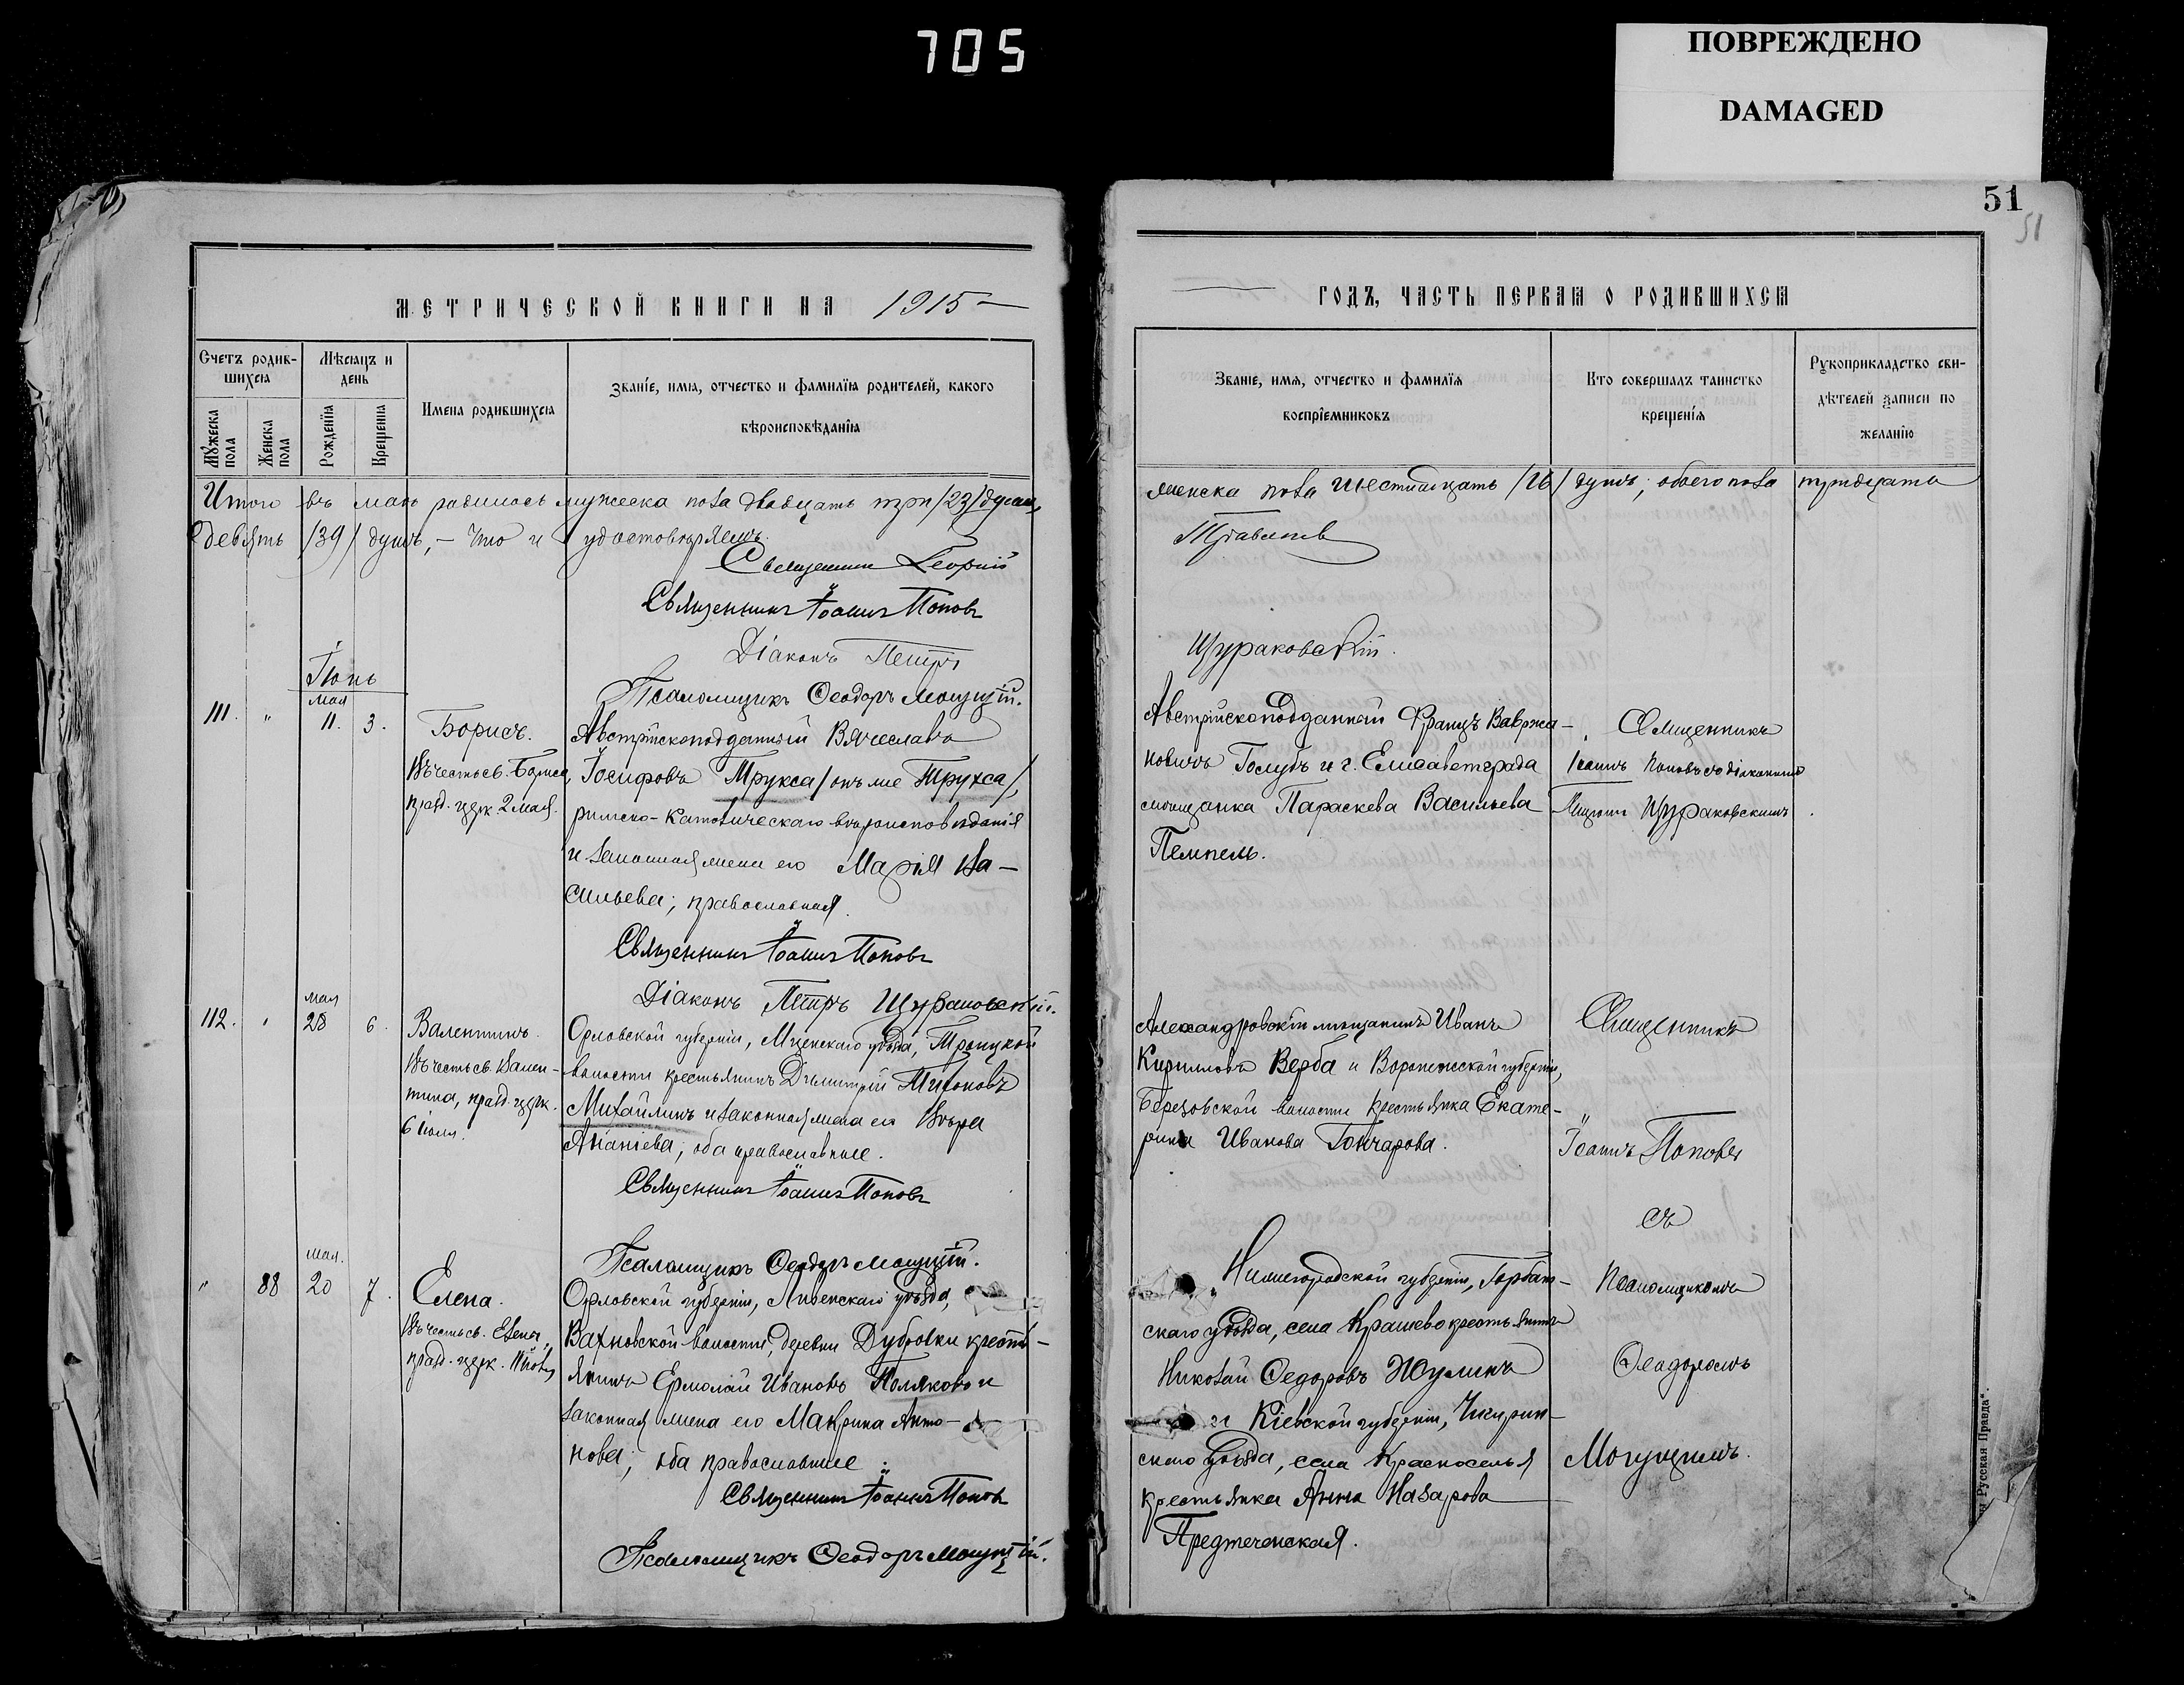 705
ПОВРЕЖДЕНО
DAMAGED
51
51
МЕТРИЧЕСКОЙ КНИГИ НА 1915
Счетъ родив-
шихся
Мѣсяцъ и
день
Имена родившихся
Званіе, имя, отчество и фамилія родителей, какого
вѣроисповѣданія
Мужеска
пола
Женска
пола
Рожденія
Крещенія
Итого въ маѣ родилось мужеска пола двадцать три /23/ душъ,
девять /39/ душъ, - Что и удостовѣряемъ.
Священникъ Георгій
Священникъ Іоаннъ Поповъ
Діаконъ Петръ
Псаломщикъ Ѳеодоръ Могуцій.
Іюнь
мая
111. " 11. 3.
Борисъ.
Въ честь св. Бориса,
празд. церк. 2 мая.
Австрійскоподданный Вячеславъ
Іосифовъ Трукса /онъ же Трухса/,
римско-католическаго вѣроисповѣданія
и законная жена его Марія Ва-
сильева; православная.
Священникъ Іоаннъ Поповъ
Діаконъ Петръ Щураковскій.
мая
112. " 28 6.
Валентинъ.
Въ честь св. Вален-
тина, празд. церк.
6 іюля.
Орловской губерніи, Мценскаго уѣзда, Троицкой
волости крестьянинъ Димитрій Тихоновъ
Михайлинъ и законная жена его Вѣра
Ананіева; оба православные.
Священникъ Іоаннъ Поповъ
Псаломщикъ Ѳеодоръ Могуцій.
мая.
" 88 20 7.
Елена.
Въ честь св. Елены,
празд. церк.
Орловской губерніи, Ливенскаго уѣзда,
Вахновской волости, деревни Дубровки кресть-
янинъ Ермолай Ивановъ Поляковъ и
законная жена его Макрина Анто-
нова; оба православные.
Священникъ Іоаннъ Поповъ
Псаломщикъ Ѳеодоръ Могуцій.
ГОДЪ, ЧАСТЬ ПЕРВАЯ О РОДИВШИХСЯ
Званіе, имя, отчество и фамилія
воспріемниковъ
Кто совершалъ таинство
крещенія
Рукоприкладство сви-
дѣтелей записи по
желанію
женска пола шестнадцать /16/ душъ; обоего пола тридцать
Щураковскій.
Австрійскоподданный Францъ Вавржи-
новичъ Голубъ и г. Елисаветграда
мѣщанка Параскева Васильева
Пемпель.
Священникъ
Іоаннъ Поповъ съ діакономъ
Петромъ Щураковскимъ.
Александровскій мѣщанинъ Иванъ
Кирилловъ Верба и Воронежской губерніи,
Березовской волости крестьянка Екате-
рина Иванова Гончарова.
Священникъ
Іоаннъ Поповъ
съ
Псаломщикомъ
Ѳеодоромъ
Могуцимъ.
Нижегородской губерніи, Горбат-
скаго уѣзда, села Крашево крестьянинъ
Николай Ѳедоровъ Жулинъ
и Кіевской губерніи, Чигирин-
скаго уѣзда, села Красноселья
крестьянка Анна Назарова
Предтеченская.
Русская Правда".